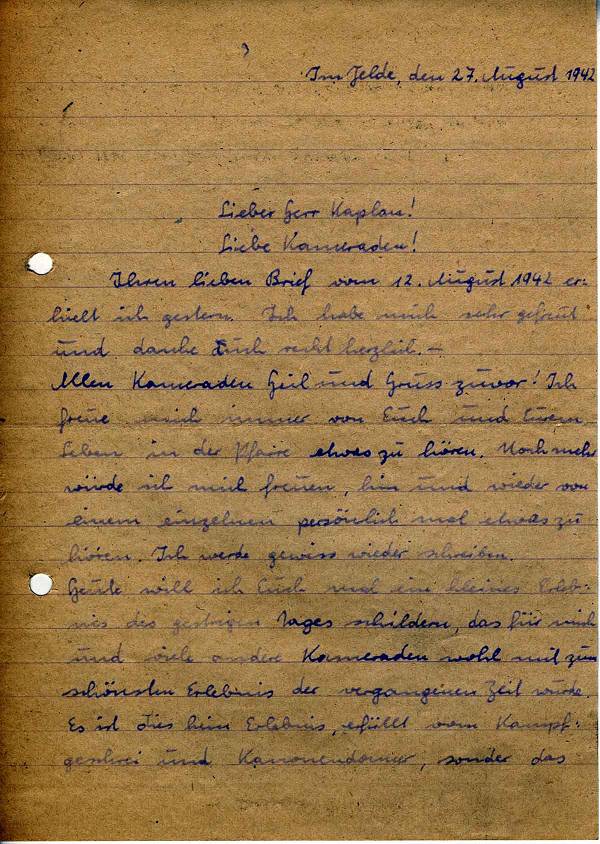 Im Felde, den 27. August 1942
Lieber Herr Kaplan!
Liebe Kameraden!
Ihren lieben Brief vom 12. August 1942 er-
hielt ich gestern. Ich habe mich sehr gefreut
und danke Euch recht herzlich. –
Allen Kameraden Heil und Gruss zuvor! Ich
freue mich immer von Euch und Eurem
Leben in der Pfarre etwas zu hören. Noch mehr
würde ich mich freuen, hin und wieder von
einem einzelnen persönlich mal etwas zu
hören. Ich werde gewiss wieder schreiben.
Heute will ich Euch mal ein kleines Erleb-
nis des gestrigen Tages schildern, das für mich
und viele andere Kameraden wohl mit zum
schönsten Erlebnis der vergangenen Zeit wurde.
Es ist dies kein Erlebnis, erfüllt vom Kampf-
geschrei und Kanonendonner, sonder das